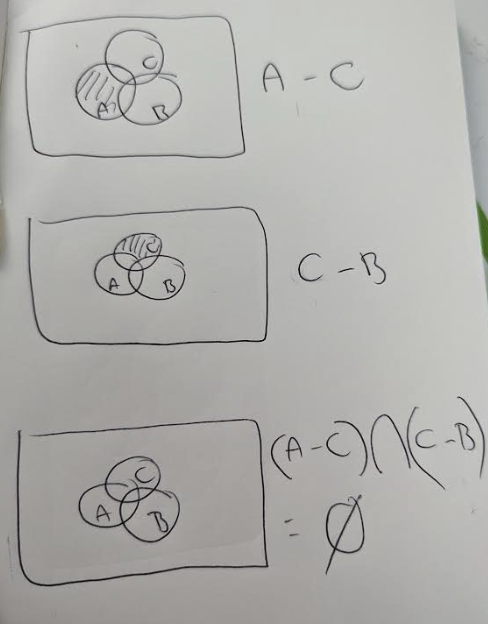 C
A B
A - C
C
A B
C - B
C
A B
(A-C)∩(C-B)
= ∅